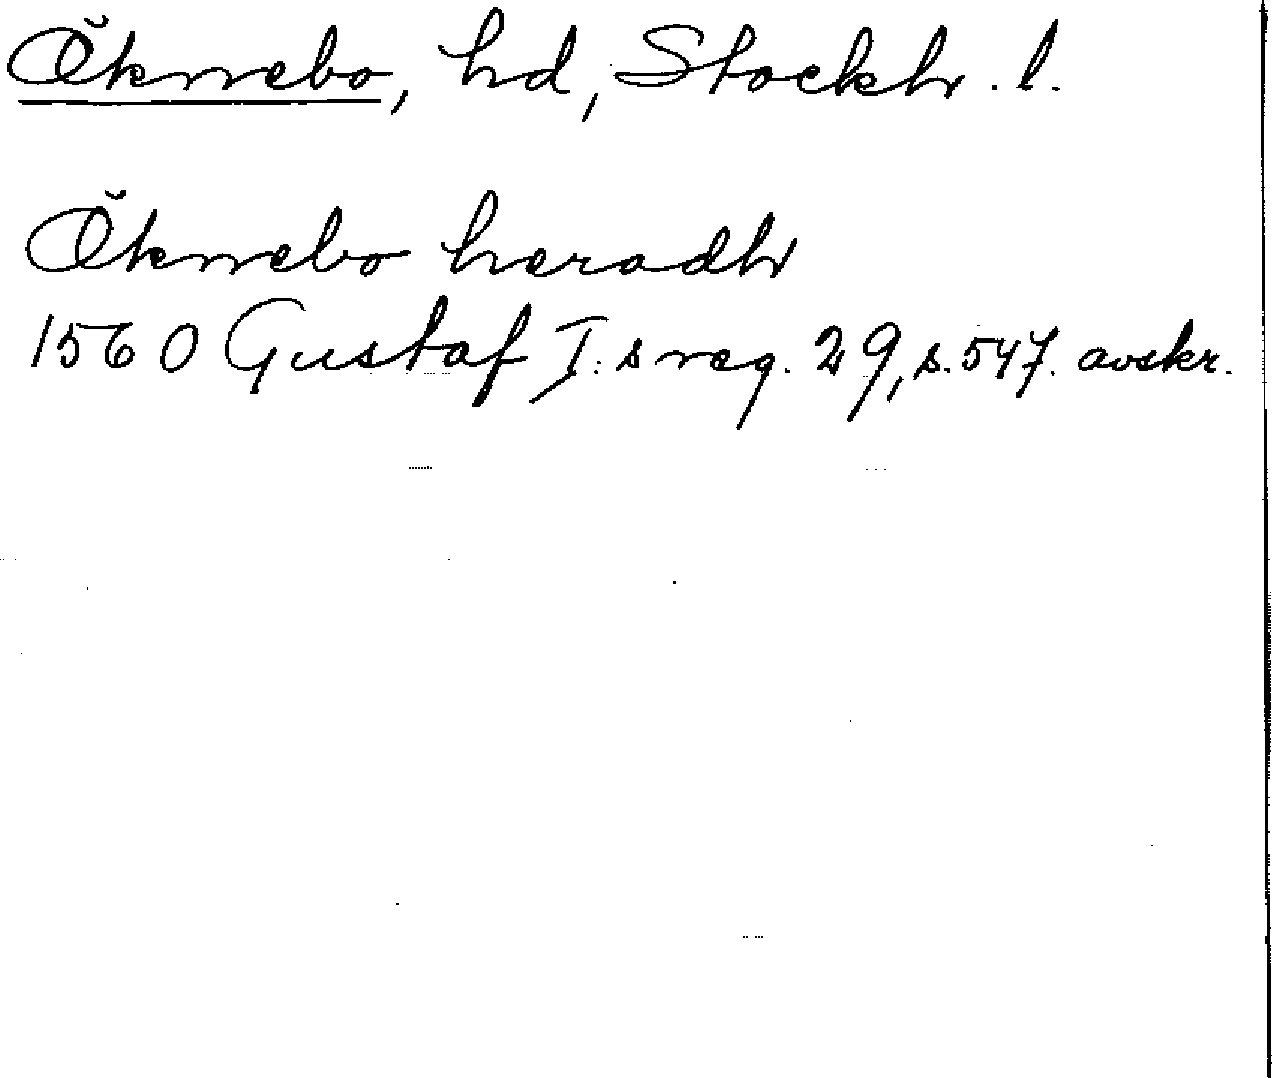 Öknebo, hd, Stockh. l.
Öknebo heradh
1560 Gustaf I:s reg. 29, s. 547. avskr.